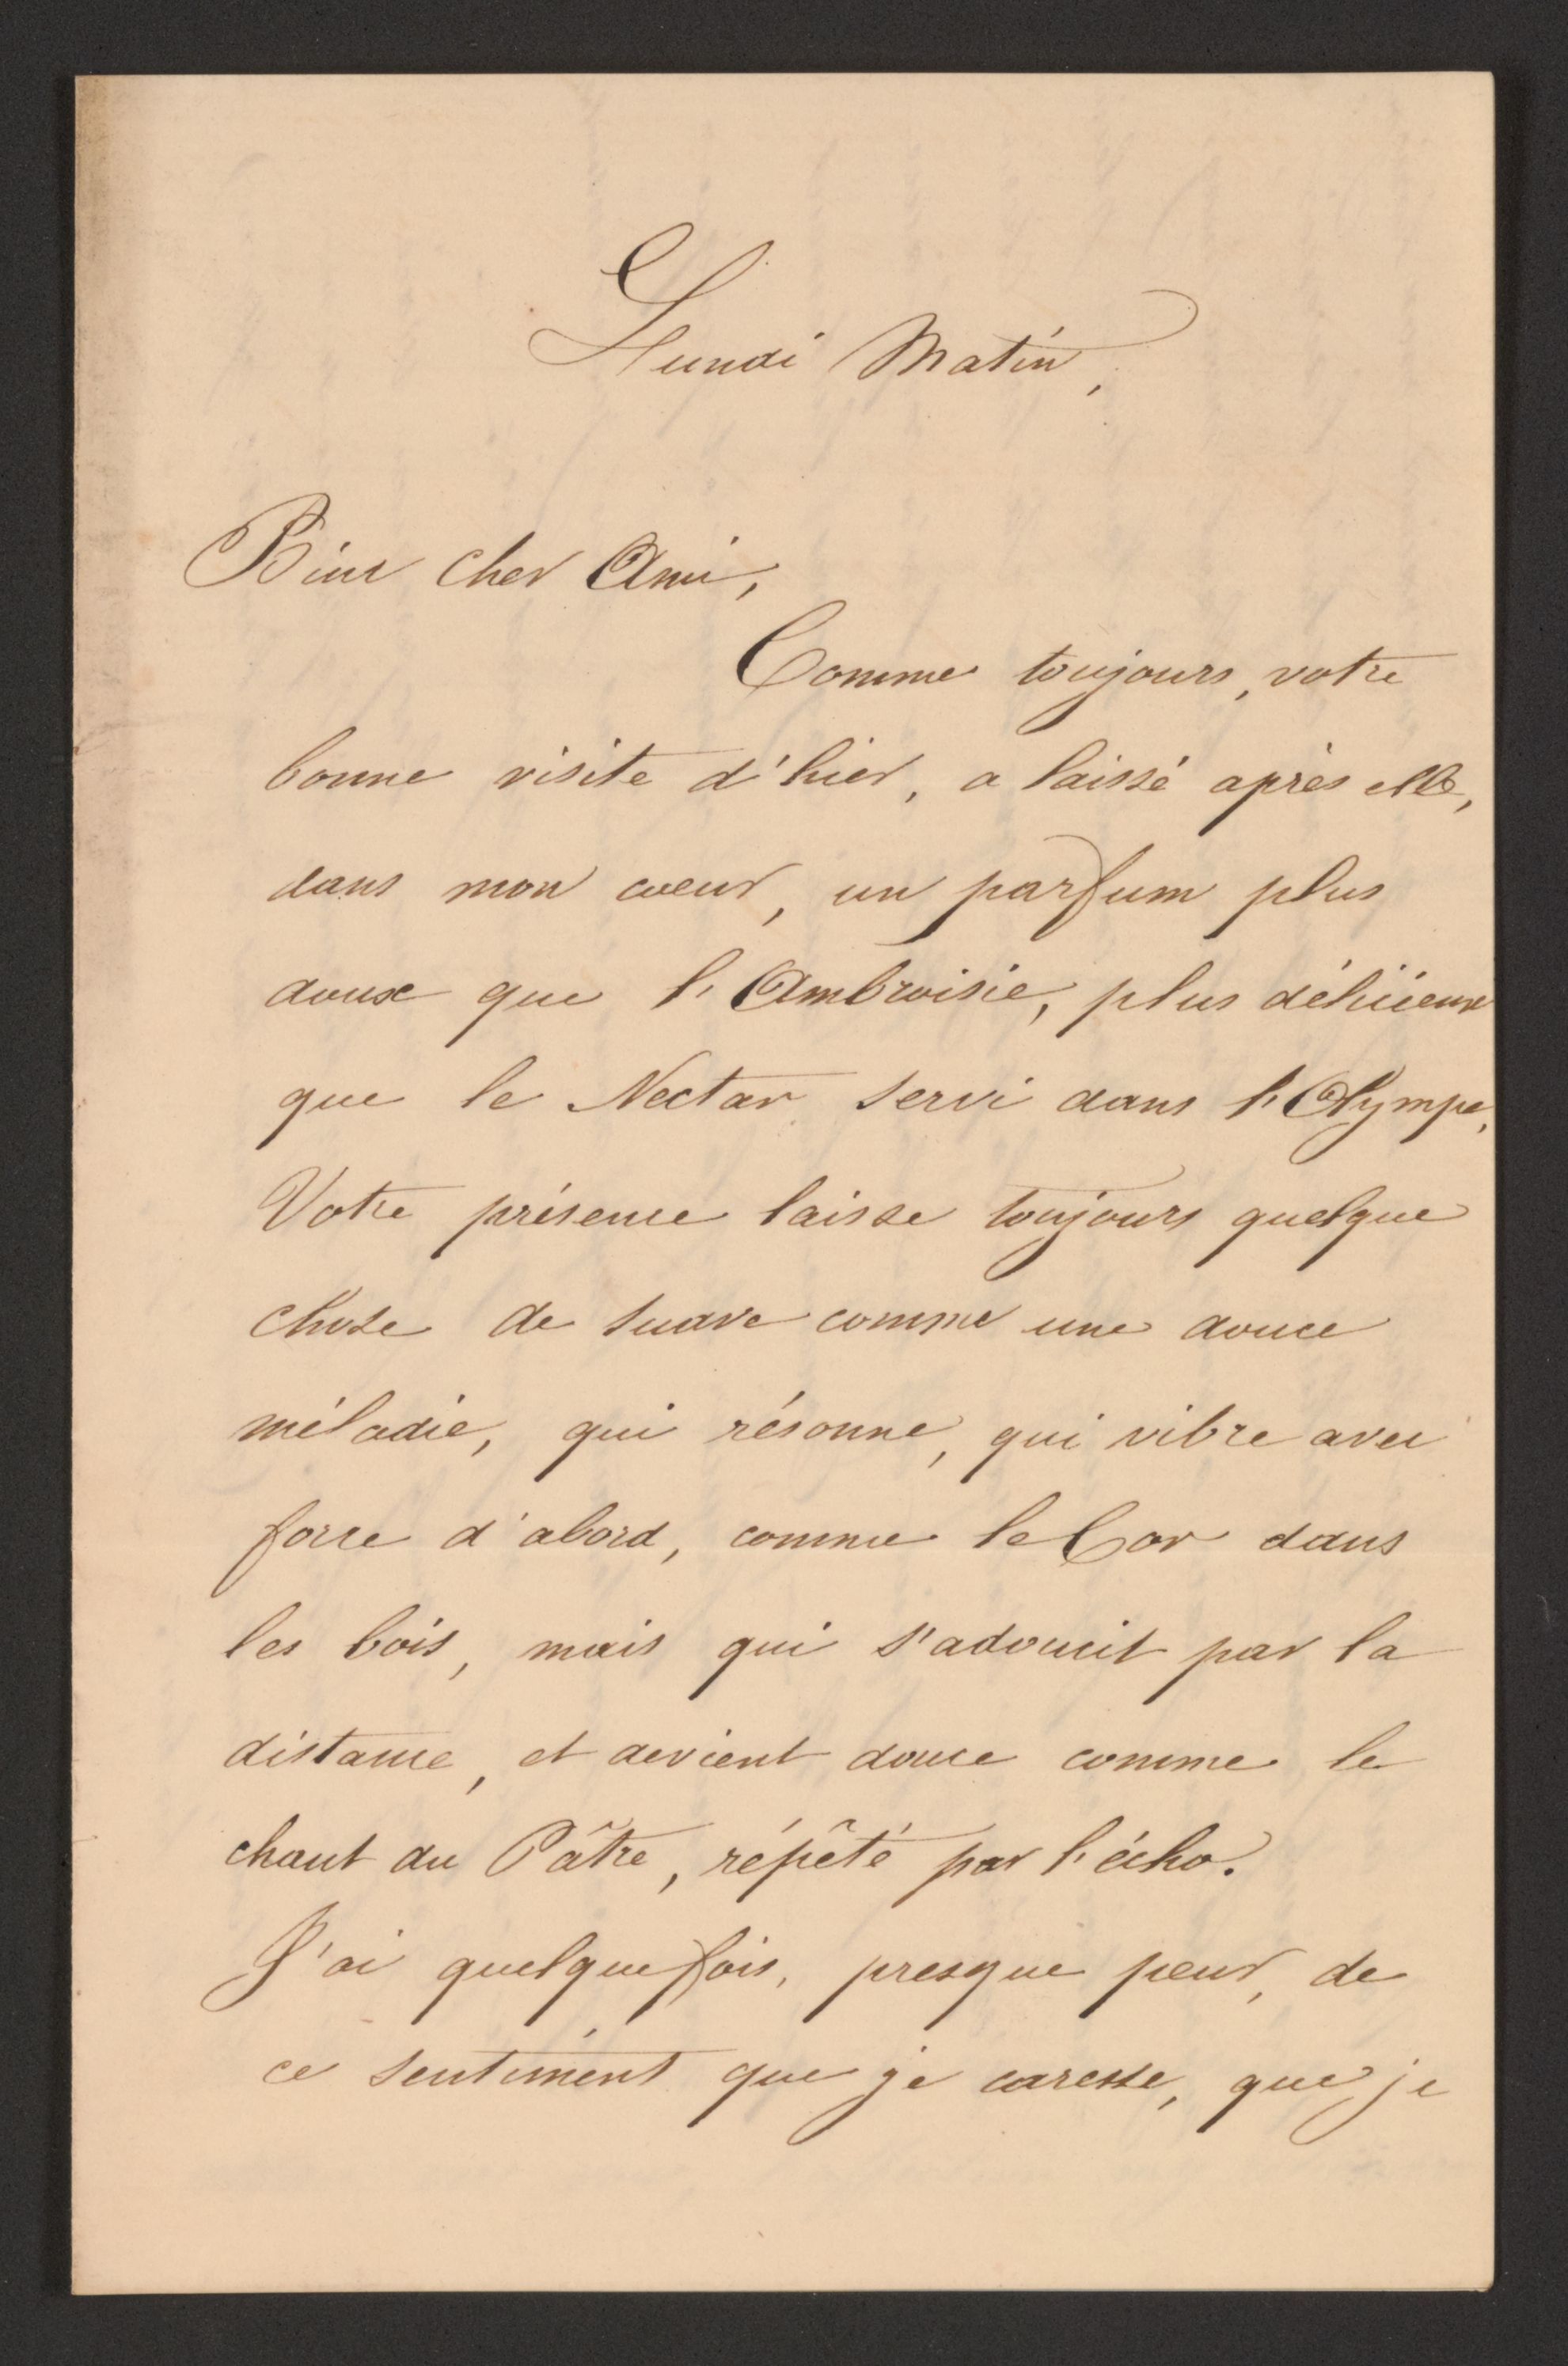 Lundi Matin,
Bien cher Ami,
Comme toujours, votre
bonne visite d'hier, a laissé après elle,
dans mon cœur, un parfum plus
doux que l'Ambroisie, plus délicieux
que le Nectar servi dans l'Olympe,
Votre présence laisse toujours quelque
chose de suave comme une douce
mélodie, qui résonne, qui vibre avec
force d'abord, comme le Cor dans
les bois, mais qui s'adoucit par la
distance, et devient douce comme le
chant du Pâtre, répêté par l'écho.
J'ai quelquefois, presque peur, de
ce sentiment que je caresse, que je